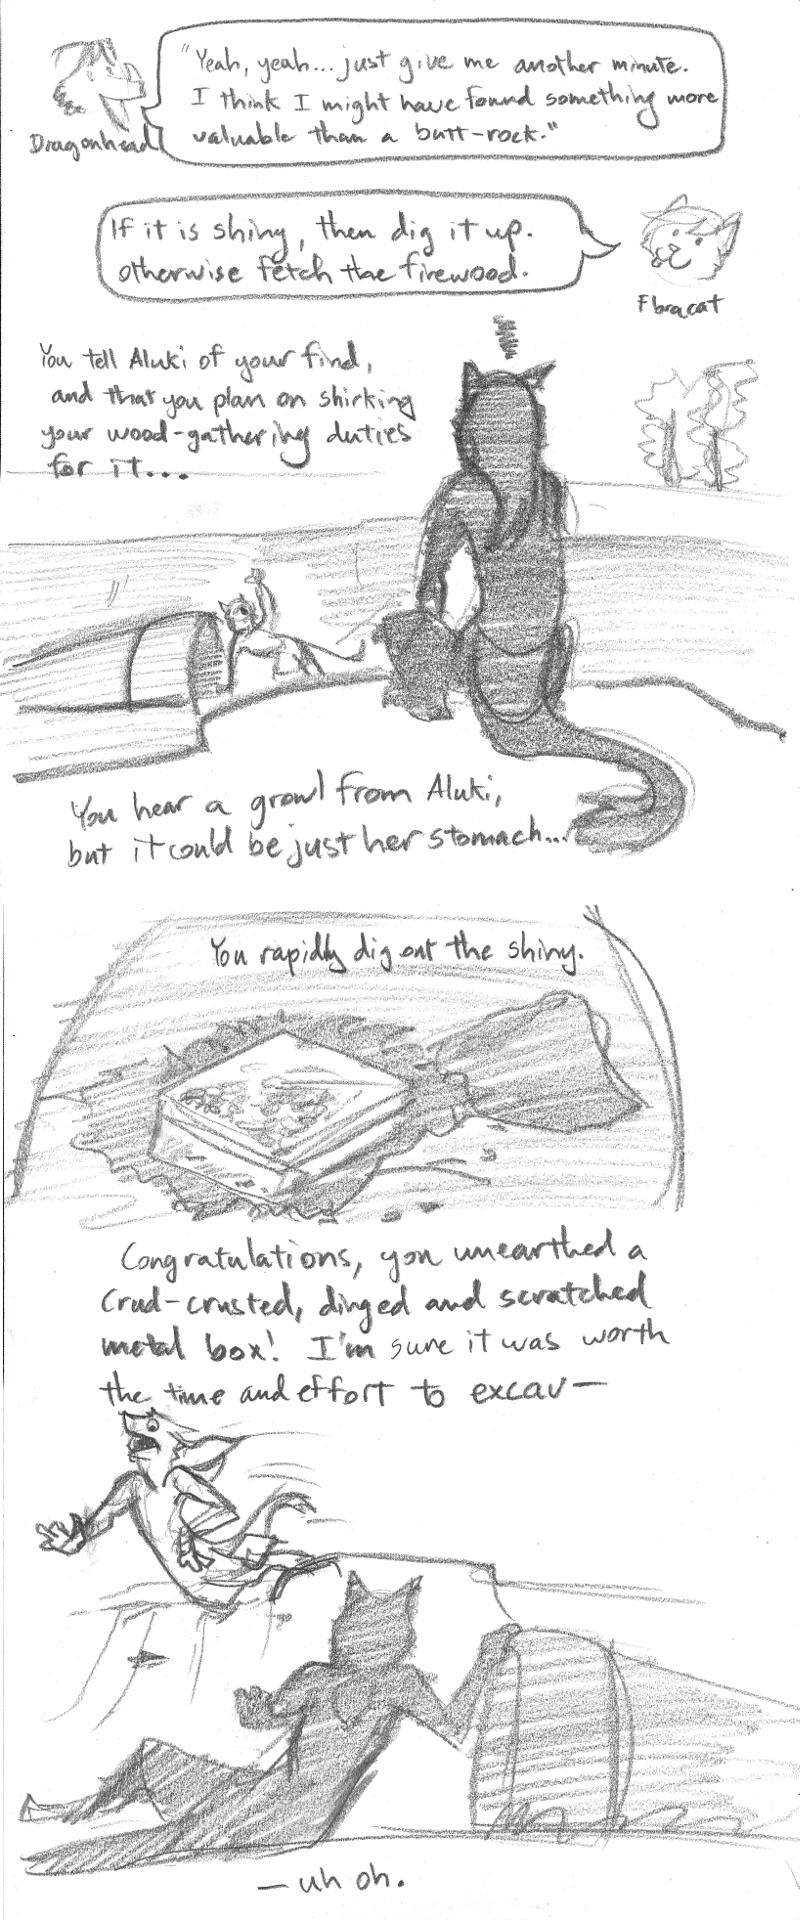 "Yeah, yeah... just give me another minute.
I think I might have found something more
valuable than a butt-rock."
Dragonhead
If it is shiny, then dig it up.
otherwise fetch the firewood.
Fbracat
You tell Aluki of your find,
and that you plan on shirking
your wood-gathering duties
for it...
You hear a growl from Aluki,
but it could be just her stomach...
You rapidly dig out the shiny.
Congratulations, you unearthed a
crud-crusted, dinged and scratched
metal box! I'm sure it was worth
the time and effort to excav—
—uh oh.